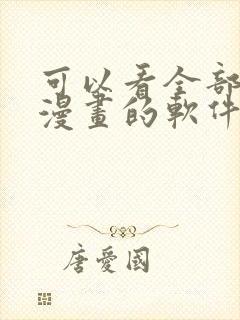 可以看全部
漫畫的軟件
唐愛國